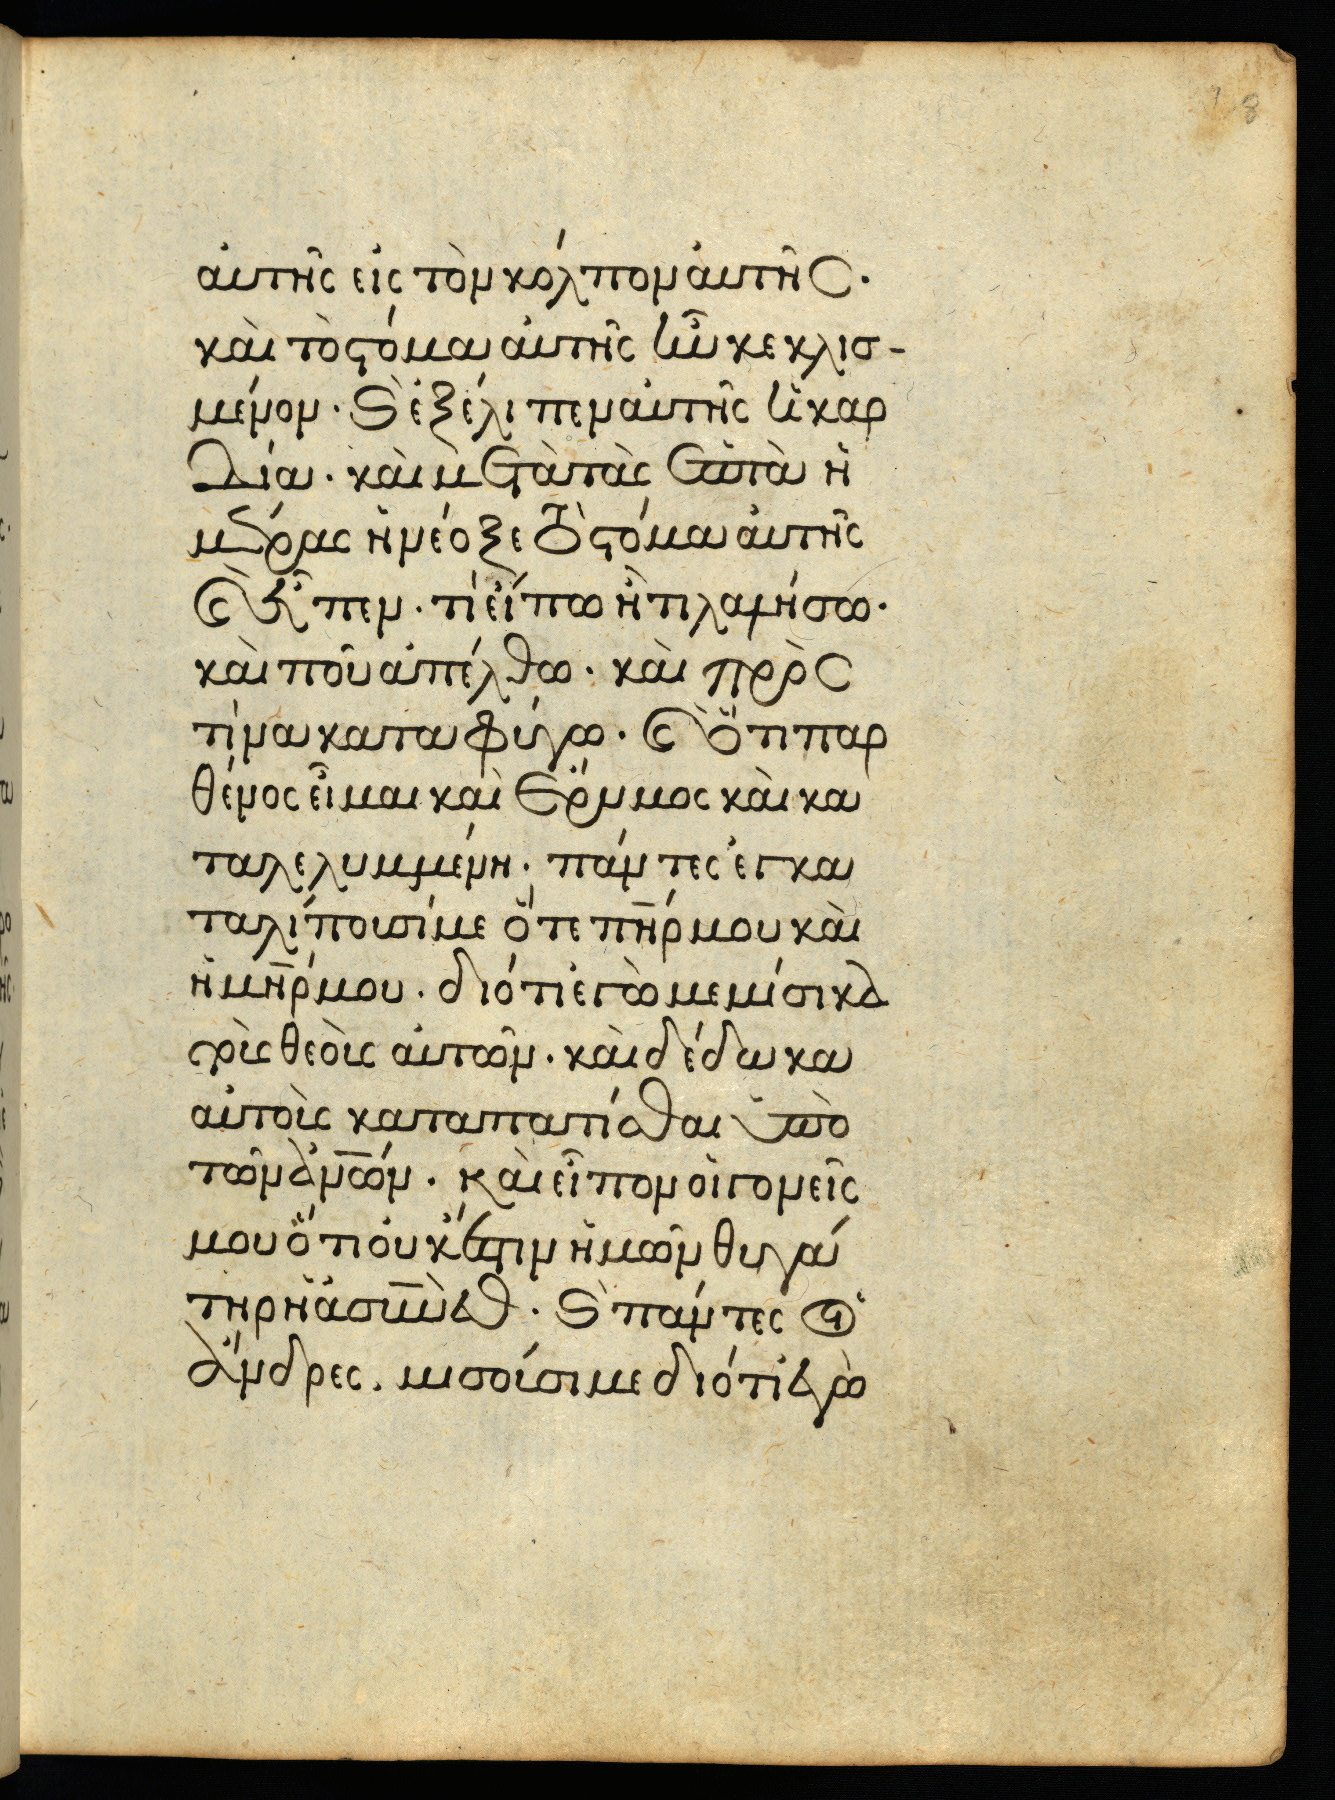 8
αὐτῆς εἰς τὸν κόλπον αὐτῆς·
καὶ τὸ στόμα αὐτῆς ἦν κεκλισ-
μένον· καὶ ἐξέλιπεν αὐτῆς ἡ καρ
δία· καὶ μετὰ τὰς ἑπτὰ ἡ
μέρας ἠνέοξε τὸ στόμα αὐτῆς
καὶ εἶπεν· τί εἴπω ἢ τι λαλήσω·
καὶ ποῦ ἀπέλθω· καὶ πρὸς
τίνα καταφύγω· καὶ ὅτι παρ
θένος εἶμαι καὶ ἔρημος καὶ κα
ταλελυμμένη· πάντες ἐγκα
ταλίποισί με ὅτε πηρ μου καὶ
ἡ μηρ μου· διότι ἐγὼ μεμίσικα
τοὶς θεοὶς αὐτῶν· καὶ δέδωκα
αὐτοὶς καταπατίσθαι ὑπὸ
τῶν ἀνων· καὶ εἶπον οἱ γονεῖς
μου ὅτι οὐκ ἔστιν ἡμῶν θυγά
τηρ ἡ ἀσυνὲθ· καὶ πάντες οἱ
ἄνδρες. μισοίσι με διότι ἐγὼ